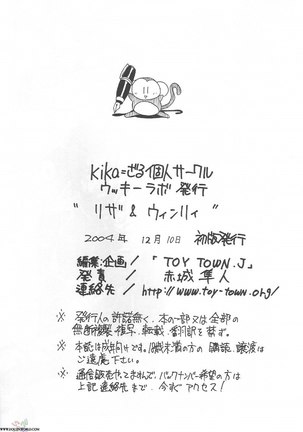 kika=ざる個人サークル
ウッキーラボ 発行
"リザ & ウィンリィ"
2004年 12月10日 初版発行
編集・企画/「TOY TOWN.J」
発責/赤城 隼人
連絡先/http://www.toy-town.org/
※ 発行人の許諾無く、本の一部又は全部の
無断複製、複写、転載、翻訳を禁ず。
※ 本誌は成年向けです。18歳未満の方の購読、譲渡は
ご遠慮下さい。
※ 通信販売もやってますんで、バックナンバー希望の方は
上記連絡先まで、今すぐアクセス!